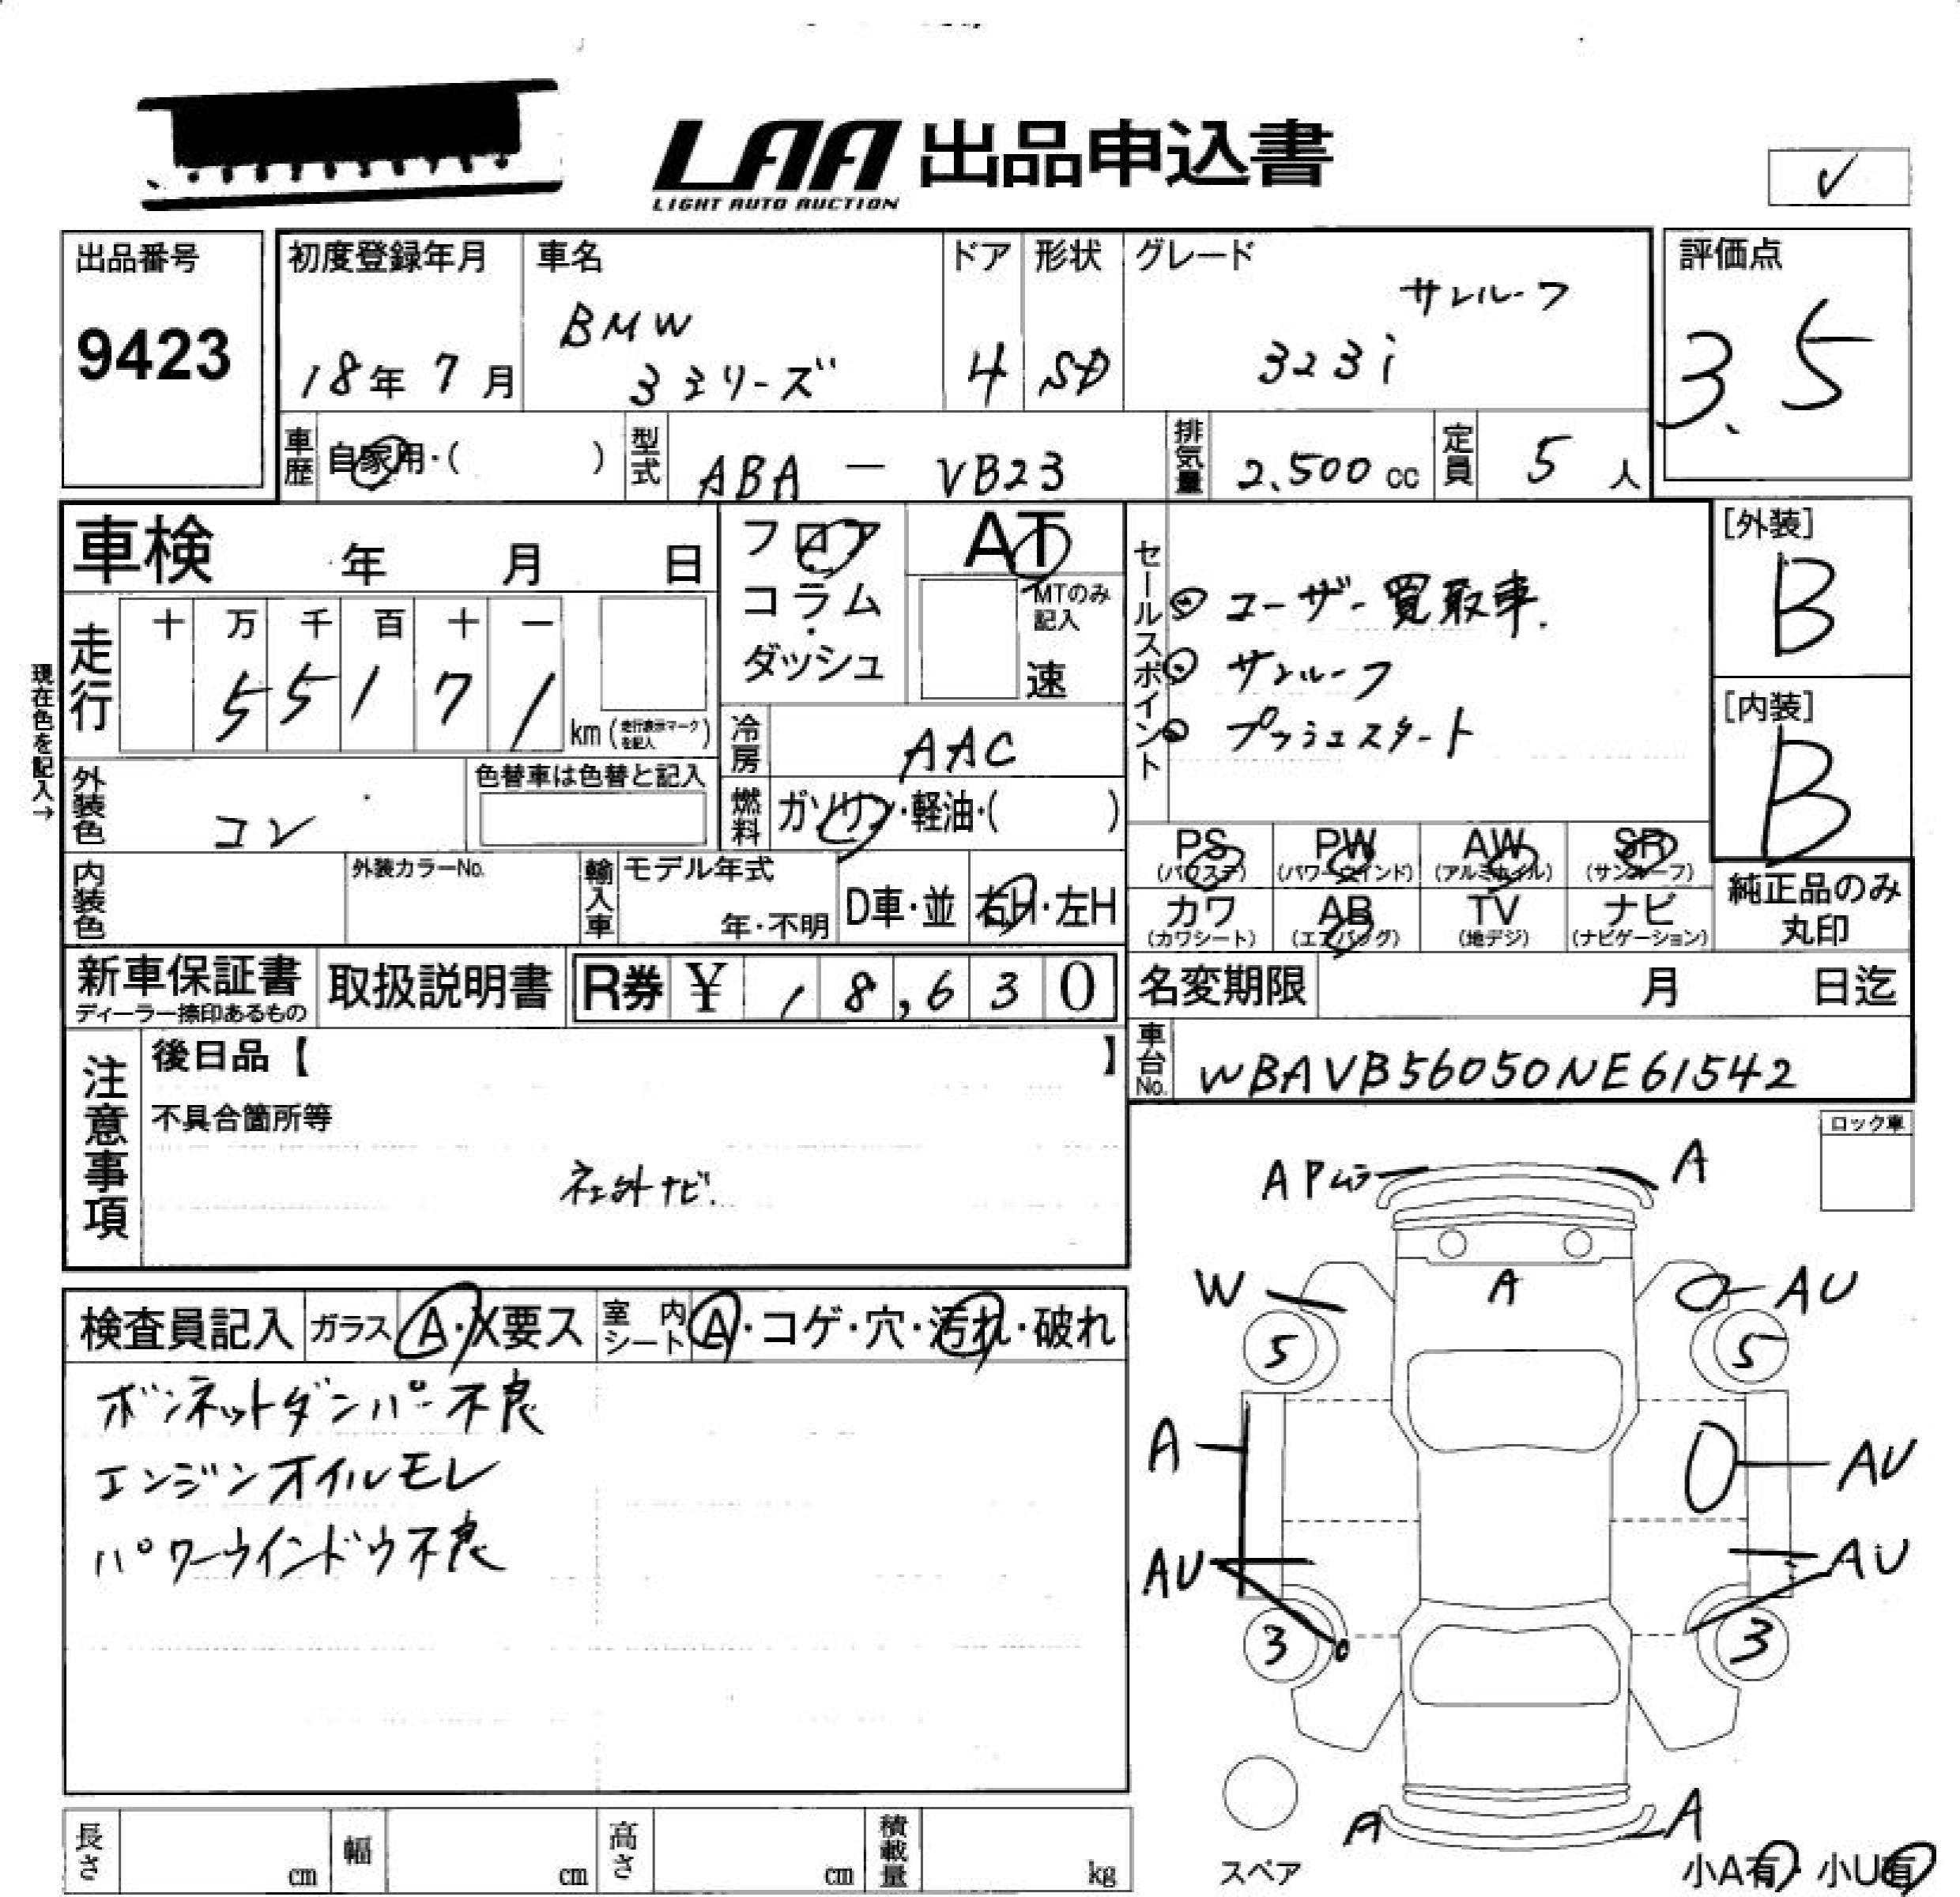 LAA 出品申込書
LIGHT AUTO AUCTION
✓
出品番号
9423
初度登録年月
18年 7月
車名
BMW
3シリーズ
ドア
4
形状
SD
グレード
サンルーフ
323i
評価点
3.5
車歴
自家用・( )
型式
ABA － VB23
排気量
2,500 cc
定員
5 人
車検 年 月 日
フロア
・
コラム
・
ダッシュ
AT
MTのみ
記入
速
セールスポイント
◎ ユーザー買取車.
◎ サンルーフ
◎ プッシュスタート
[外装]
B
[内装]
B
現在色を記入→
走行
十 万 千 百 十 一
5 5 1 7 1
km (走行表示マークを記入)
冷房
AAC
外装色
コン
色替車は色替と記入
燃料
ガソリン・軽油・( )
内装色
外装カラーNo.
輸入車
モデル年式
年・不明
D車・並
右H・左H
PS
(パワステ)
PW
(パワーウインド)
AW
(アルミホイル)
SR
(サンルーフ)
カワ
(カワシート)
AB
(エアバッグ)
TV
(地デジ)
ナビ
(ナビゲーション)
純正品のみ
丸印
新車保証書
ディーラー捺印あるもの
取扱説明書
R券 ¥ 18,630
名変期限 月 日迄
車台No.
WBAVB56050NE61542
注意事項
後日品【 】
不具合箇所等
社外ナビ.
ロック車
検査員記入
ガラス
A・X要ス
室内
シート
A・コゲ・穴・汚れ・破れ
ボンネットダンパー不良
エンジンオイルモレ
パワーウインドウ不良
APムラ
A
W
A
AU
5
5
A
AU
AU
AU
3
3
A
A
スペア
小A有・小U有
長さ cm
幅 cm
高さ cm
積載量 kg